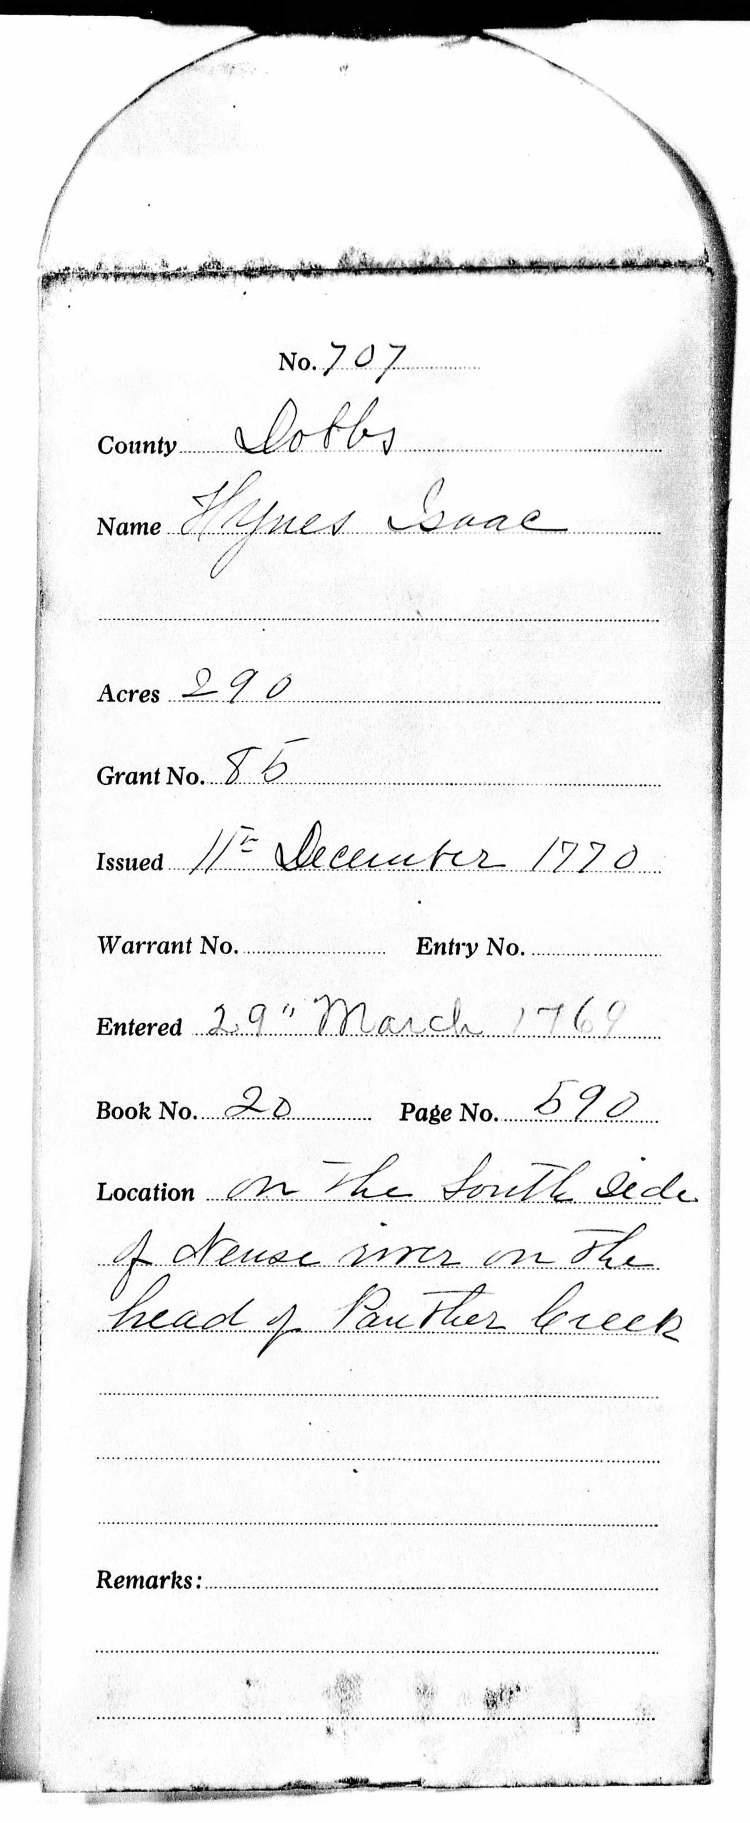 No. 707
County Dobbs
Name Hynes Isaac
Acres 290
Grant No. 85
Issued 11th December 1770
Warrant No. Entry No.
Entered 29" March 1769
Book No. 20 Page No. 590
Location on the South Side
of Neuse river on the
head of Panther Creek
Remarks: